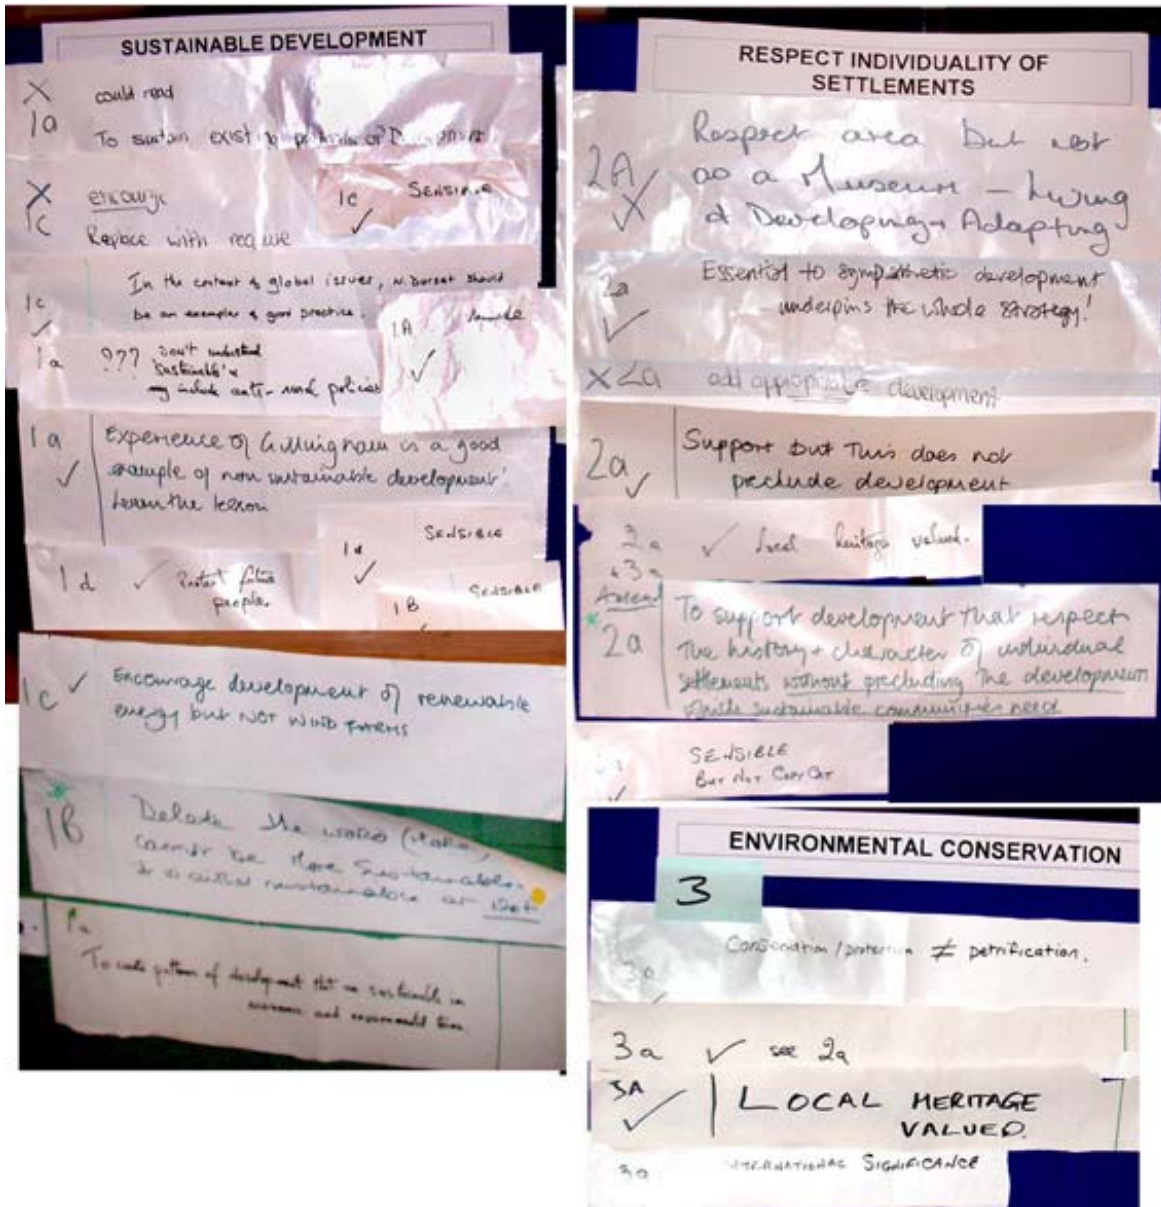 SUSTAINABLE DEVELOPMENT
X could read
1a
To sustain existing patterns of Development
X encourage
1c Replace with require
1c SENSIBLE
✓
1c In the context of global issues, N. Dorset should
✓ be an example of good practice.
1A
✓
1a ??? Don't understand
'sustainable'
may include anti-rural policies
1a Experience of Gillingham is a good
✓ example of non sustainable development!
Learn the lesson
1d SENSIBLE
✓
1d ✓ Protect future
people.
1B SENSIBLE
1c ✓ Encourage development of renewable
energy but NOT WIND FARMS
1B Delete the word (MORE)
cannot be More Sustainable.
sustainable or Not
1a
To create pattern of development that are sustainable in
and terms
RESPECT INDIVIDUALITY OF
SETTLEMENTS
2A Respect area but not
X as a Museum - Living
& Developing + Adapting
2a Essential to sympathetic development
✓ - underpins the whole strategy!
X 2a add appropriate development
2a Support but This does not
✓ preclude development
2a ✓ Local heritage valued.
+3a
Amend To support development that respect
2a The history + character of individual
settlements without precluding The development
which sustainable communities need
SENSIBLE
✓ BUT NOT COPY CAT
ENVIRONMENTAL CONSERVATION
3
3a Conservation / protection ≠ petrification.
3a ✓ see 2a
3A LOCAL HERITAGE
✓ VALUED.
3a INTERNATIONAL SIGNIFICANCE